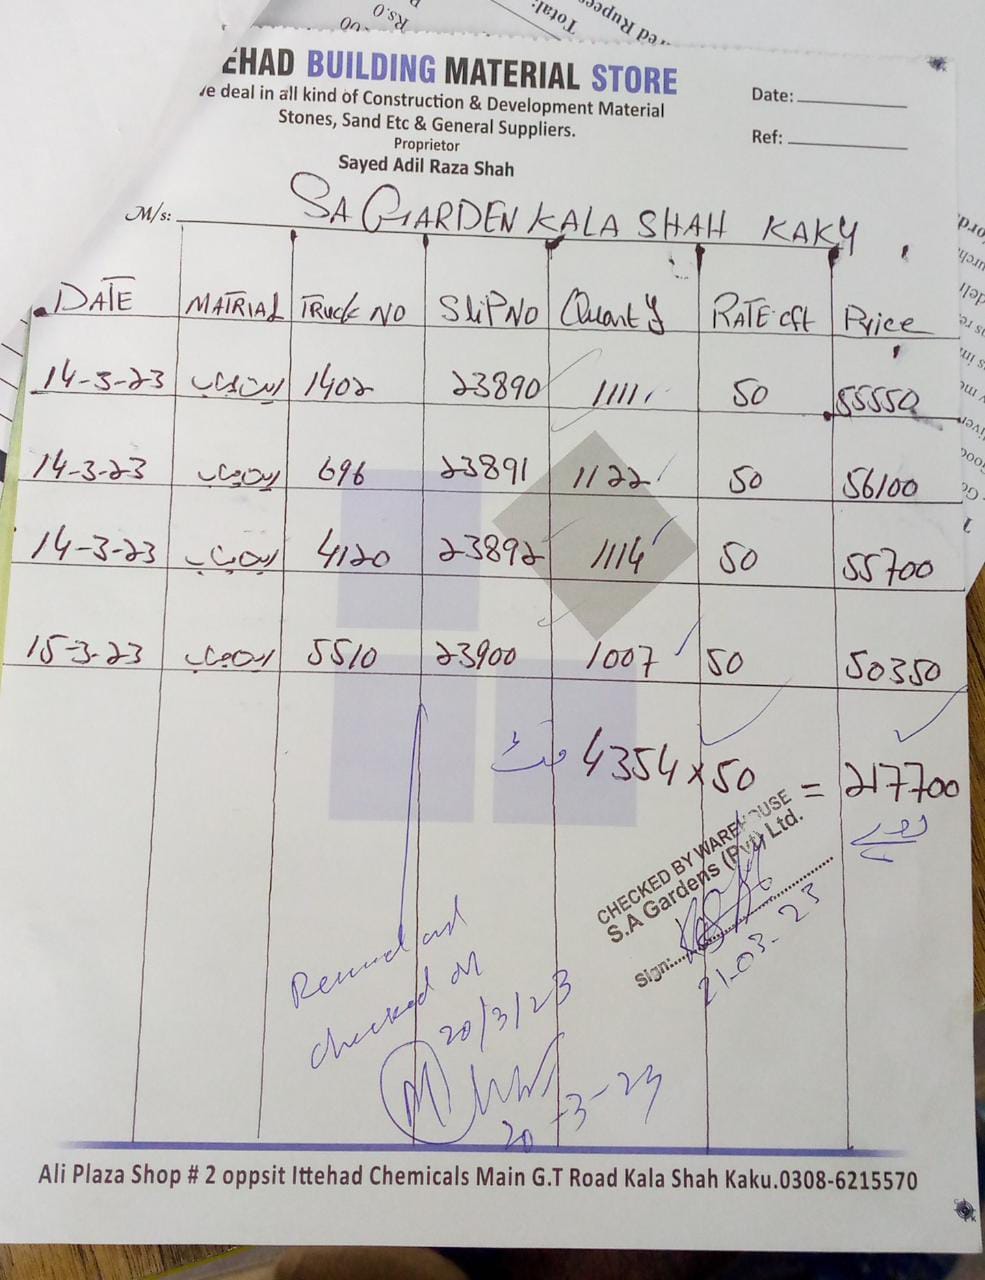 EHAD BUILDING MATERIAL STORE
We deal in all kind of Construction & Development Material
Stones, Sand Etc & General Suppliers.
Proprietor
Sayed Adil Raza Shah
Date:
Ref:
M/s: SA GARDEN KALA SHAH KAKY
DATE MATRIAL Truck NO SLIP NO Quantity RATE cft Price
14-3-23 1402 23890 1111 50 55550
14-3-23 696 23891 1122 50 56100
14-3-23 4120 23892 1114 50 55700
15-3-23 5510 23900 1007 50 50350
4354 x 50 = 217700
CHECKED BY WAREHOUSE
S.A Gardens (Pvt) Ltd.
Sign:
21-03-23
checked
20/3/23
20-3-23
Ali Plaza Shop # 2 oppsit Ittehad Chemicals Main G.T Road Kala Shah Kaku.0308-6215570